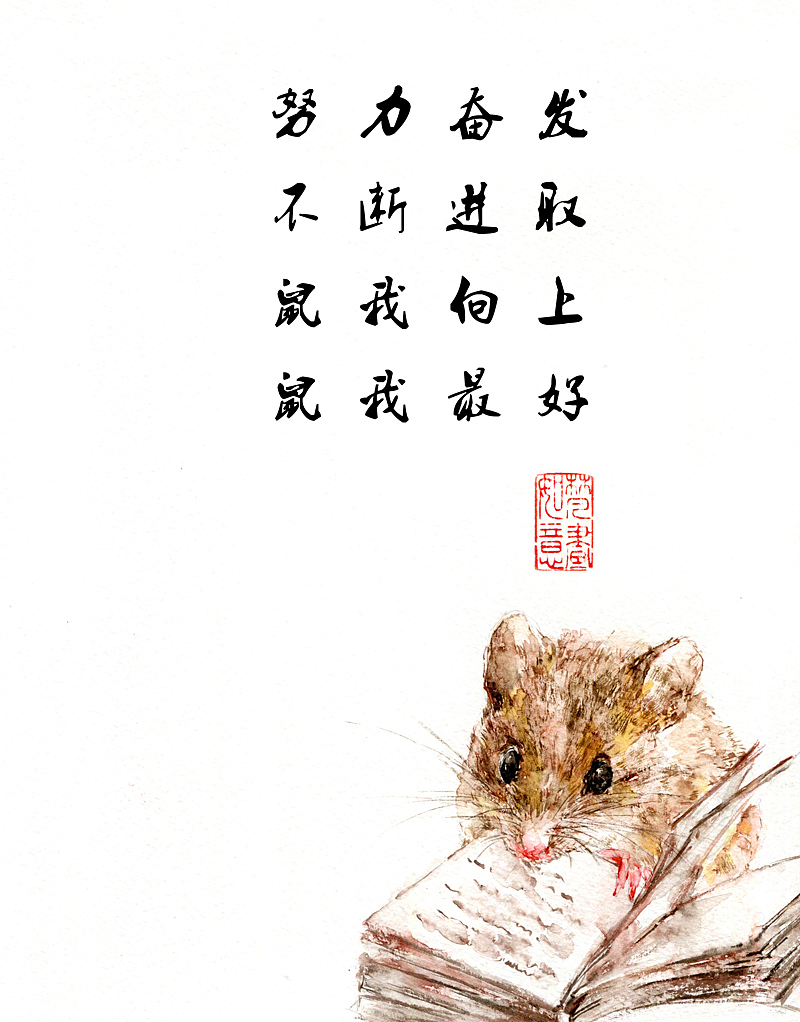 努力奋发
不断进取
鼠我向上
鼠我最好
如意